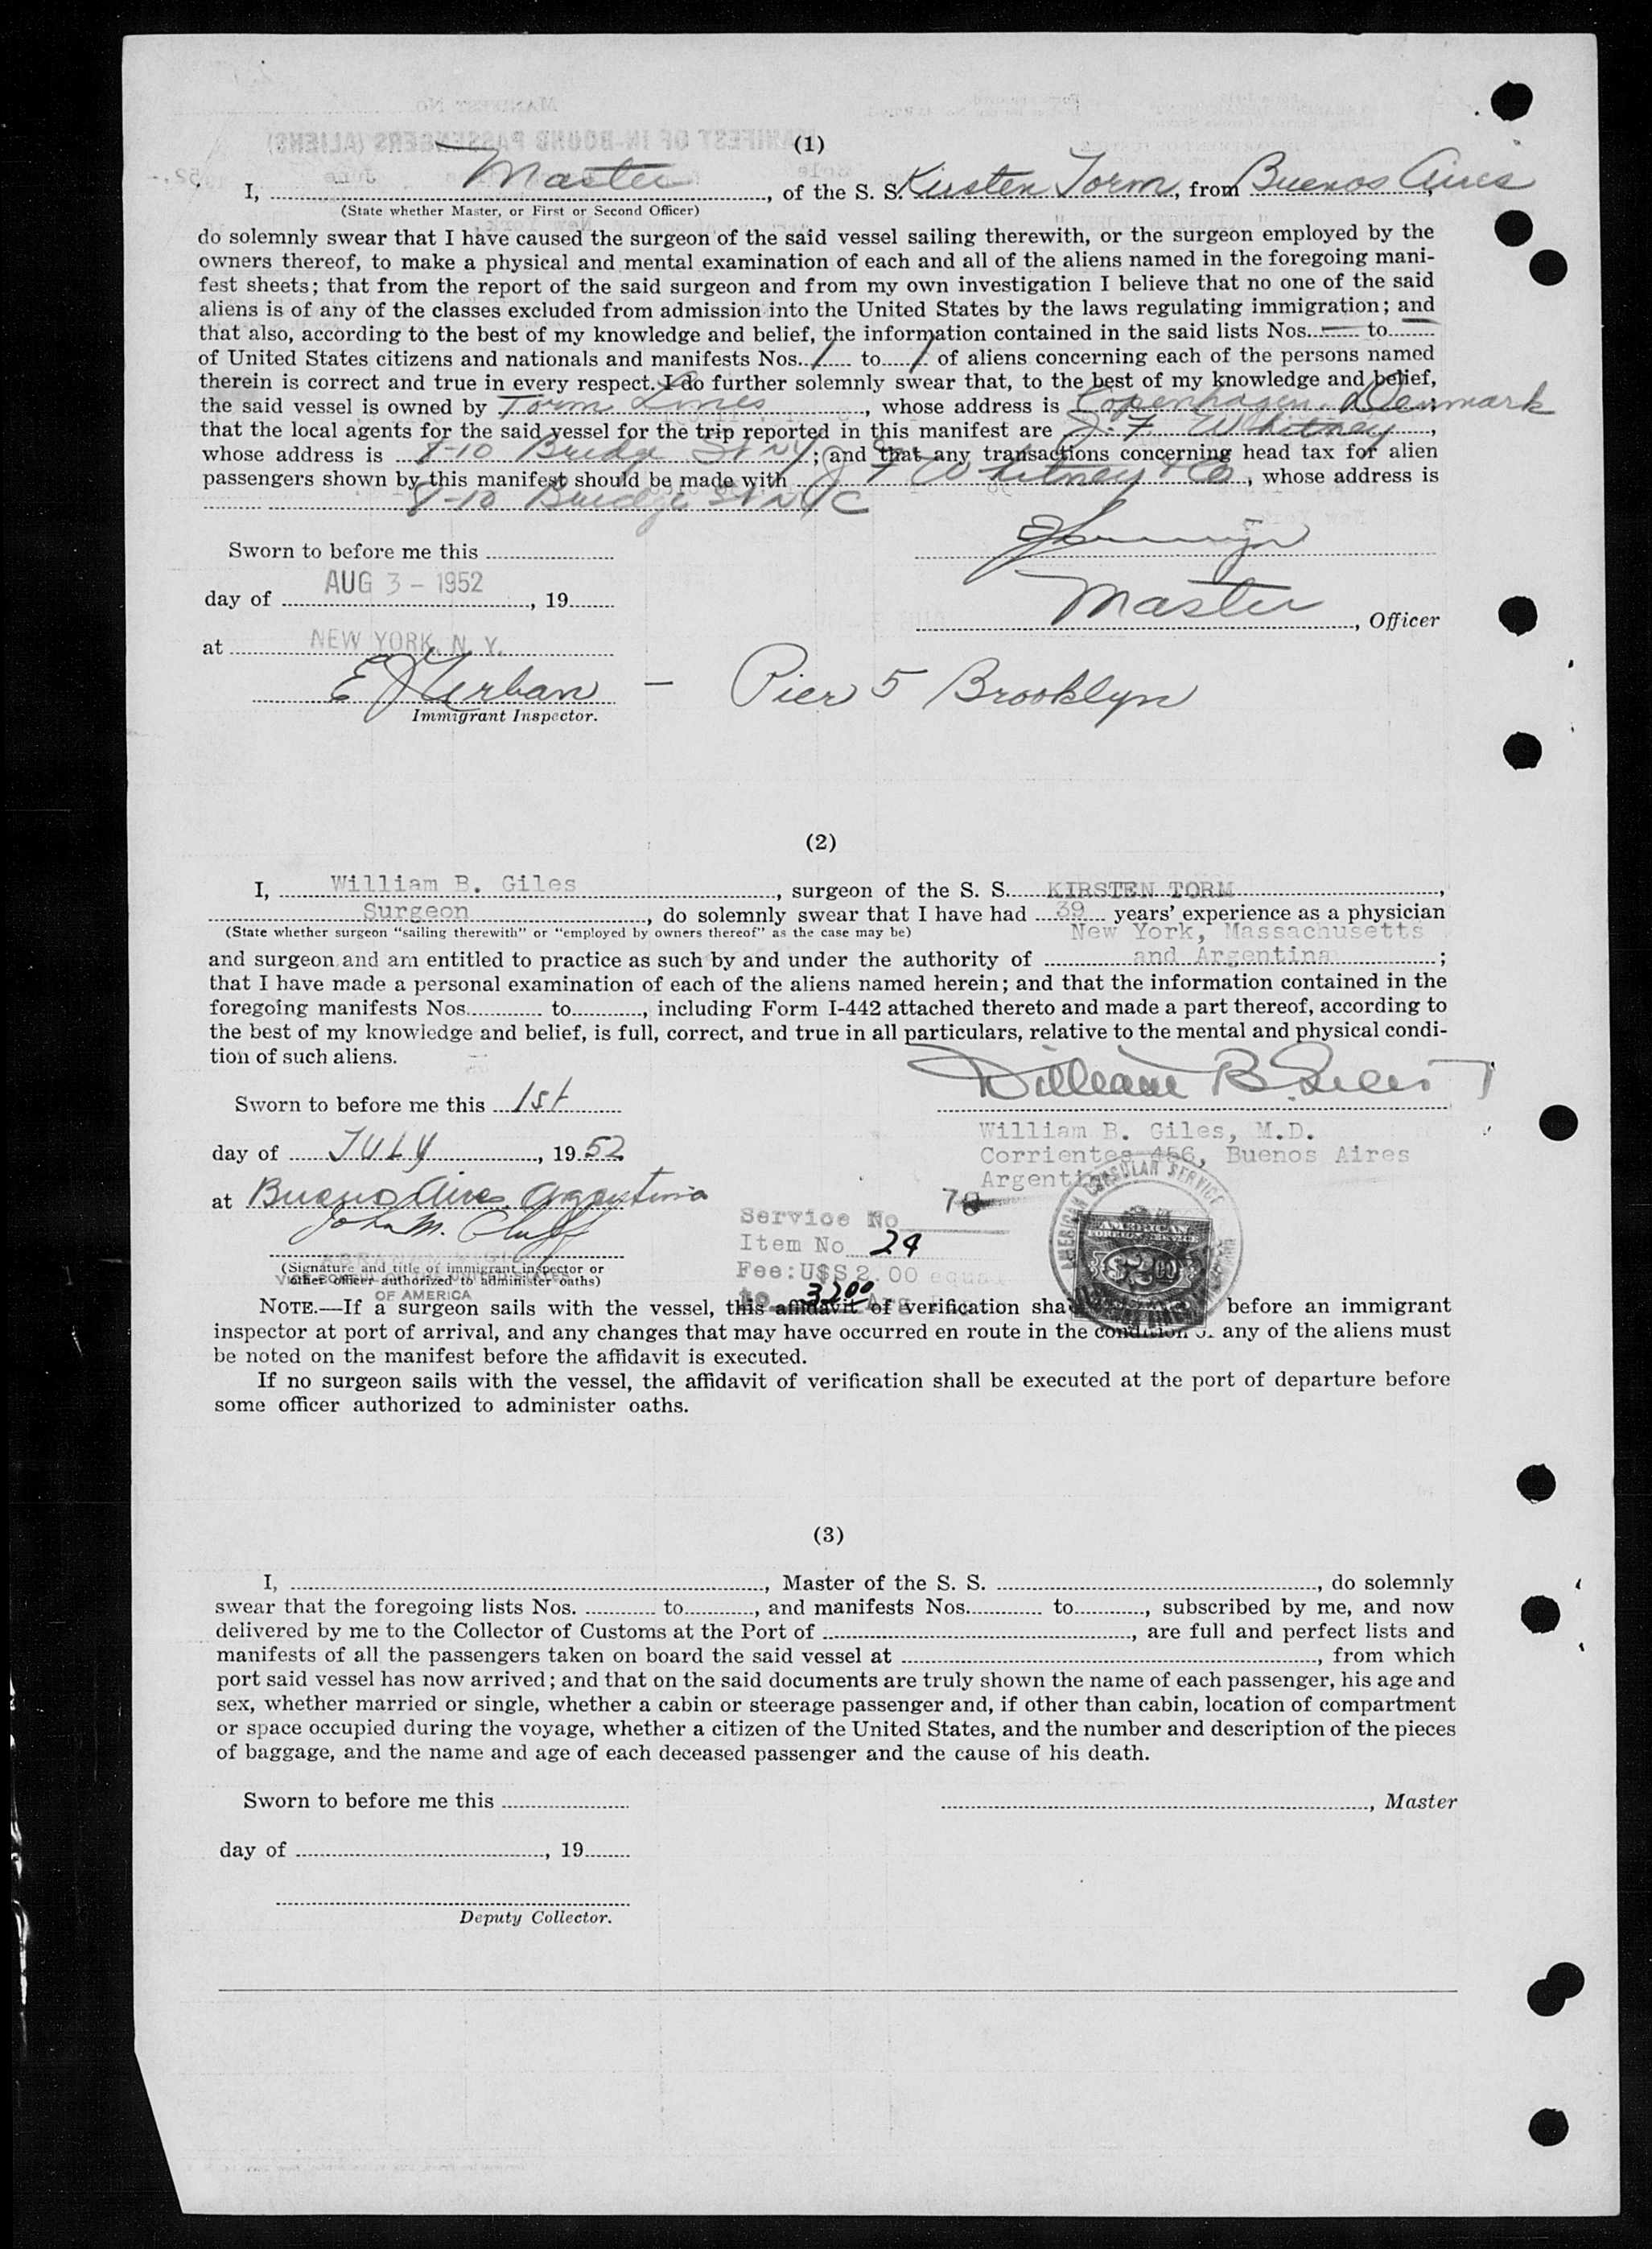 (1)
I, Master, of the S. S. Kirsten Torm, from Buenos Aires,
(State whether Master, or First or Second Officer)
do solemnly swear that I have caused the surgeon of the said vessel sailing therewith, or the surgeon employed by the
owners thereof, to make a physical and mental examination of each and all of the aliens named in the foregoing mani-
fest sheets; that from the report of the said surgeon and from my own investigation I believe that no one of the said
aliens is of any of the classes excluded from admission into the United States by the laws regulating immigration; and
that also, according to the best of my knowledge and belief, the information contained in the said lists Nos. — to
of United States citizens and nationals and manifests Nos. 1 to 1 of aliens concerning each of the persons named
therein is correct and true in every respect. I do further solemnly swear that, to the best of my knowledge and belief,
the said vessel is owned by Torm Lines, whose address is Copenhagen Denmark
that the local agents for the said vessel for the trip reported in this manifest are J. F. Whitney,
whose address is 8-10 Bridge St NY; and that any transactions concerning head tax for alien
passengers shown by this manifest should be made with J F Whitney & Co, whose address is
8-10 Bridge St NYC
Sworn to before me this
day of AUG 3 - 1952, 19
Master, Officer
at NEW YORK, N. Y.
E J Urban — Pier 5 Brooklyn
Immigrant Inspector.
(2)
I, William B. Giles, surgeon of the S. S. KIRSTEN TORM,
Surgeon, do solemnly swear that I have had 39 years' experience as a physician
(State whether surgeon "sailing therewith" or "employed by owners thereof" as the case may be)
New York, Massachusetts
and surgeon and am entitled to practice as such by and under the authority of and Argentina;
that I have made a personal examination of each of the aliens named herein; and that the information contained in the
foregoing manifests Nos. to, including Form I-442 attached thereto and made a part thereof, according to
the best of my knowledge and belief, is full, correct, and true in all particulars, relative to the mental and physical condi-
tion of such aliens.
William B. Giles
Sworn to before me this 1st
day of JULY, 1952
William B. Giles, M.D.
Corrientes 456, Buenos Aires
Argentina
at Buenos Aires, Argentina
John M. Cluff
(Signature and title of immigrant inspector or
other officer authorized to administer oaths)
OF AMERICA
Service No
Item No. 24
Fee: U$S 2.00 equal
to 32 00 Arg.
AMERICAN CONSULAR SERVICE
AMERICAN
FOREIGN SERVICE
$2 00
NOTE.—If a surgeon sails with the vessel, this affidavit of verification before an immigrant
inspector at port of arrival, and any changes that may have occurred en route in the condition of any of the aliens must
be noted on the manifest before the affidavit is executed.
If no surgeon sails with the vessel, the affidavit of verification shall be executed at the port of departure before
some officer authorized to administer oaths.
(3)
I, , Master of the S. S. , do solemnly
swear that the foregoing lists Nos. to, and manifests Nos. to, subscribed by me, and now
delivered by me to the Collector of Customs at the Port of , are full and perfect lists and
manifests of all the passengers taken on board the said vessel at , from which
port said vessel has now arrived; and that on the said documents are truly shown the name of each passenger, his age and
sex, whether married or single, whether a cabin or steerage passenger and, if other than cabin, location of compartment
or space occupied during the voyage, whether a citizen of the United States, and the number and description of the pieces
of baggage, and the name and age of each deceased passenger and the cause of his death.
Sworn to before me this
, Master
day of , 19
Deputy Collector.